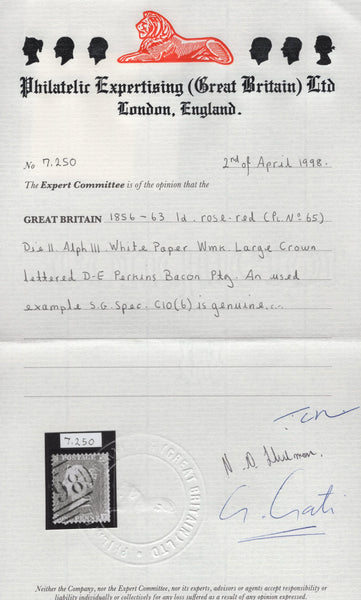 Philatelic Expertising (Great Britain) Ltd
London, England.
No 7.250 2nd of April 1998.
The Expert Committee is of the opinion that the
GREAT BRITAIN 1856-63 1d. rose-red (PL.No65)
Die II. Alph III. White Paper Wmk. Large Crown
lettered D-E Perkins Bacon Ptg. An used
example S.G. Spec. C10(6) is genuine.
7.250
N. D.
G. Gati
Neither the Company, nor the Expert Committee, nor its experts, advisors or agents accept responsibility or
liability individually or collectively for any loss suffered as a result of any opinion expressed.